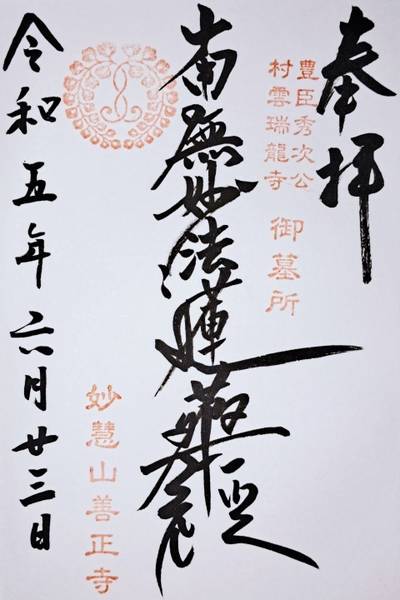 奉拝
豊臣秀次公
村雲瑞龍寺
御墓所
南無妙法蓮華経
令和五年六月廿三日
妙慧山善正寺